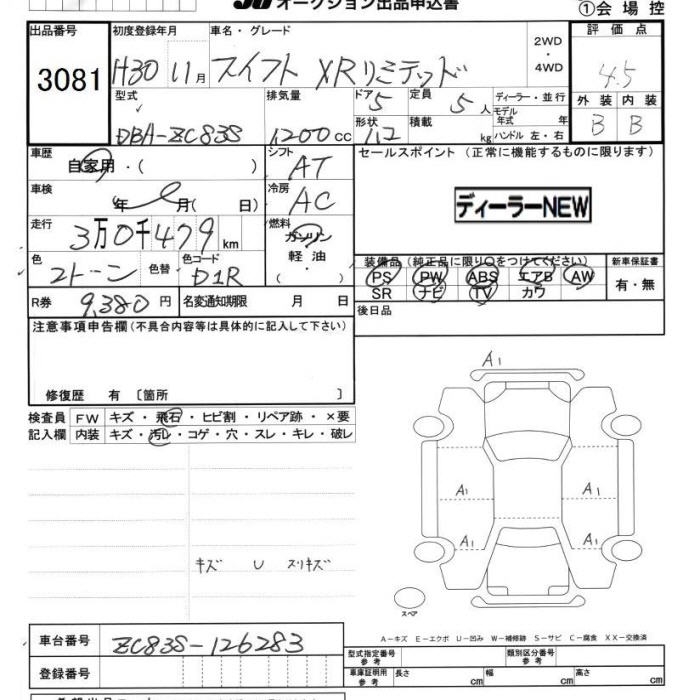 オークション出品申込書
①会場控
出品番号
3081
初度登録年月
H30 11月
車名・グレード
スイフト XRリミテッド
2WD
・
4WD
評価点
4.5
型式
DBA-ZC83S
排気量
1,200cc
ドア
5
定員
5人
ディーラー・並行
モデル年式 年
形状
積載
kg
ハンドル 左・右
外装 内装
B B
車歴
自家用・( )
シフト
AT
セールスポイント (正常に機能するものに限ります)
ディーラーNEW
車検
年 月( 日)
冷房
AC
走行
3万0千479km
燃料
ガソリン
軽油
( )
色
2トーン
色替
色コード
D1R
装備品(純正品に限り○をつけてください)
PS PW ABS エアB AW
SR ナビ TV カワ
新車保証書
有・無
R券
9,380円
名変通知期限 月 日
後日品
注意事項申告欄(不具合内容等は具体的に記入して下さい)
修復歴 有 〔箇所 〕
検査員
記入欄
FW キズ・飛石・ヒビ割・リペア跡・×要
内装 キズ・汚レ・コゲ・穴・スレ・キレ・破レ
A1
A1 A1
A1 A1
キズ U スリキズ
スペア
A−キズ E−エクボ U−凹み W−補修跡 S−サビ C−腐食 XX−交換済
車台番号
ZC83S-126283
登録番号
型式指定番号
参考
類別区分番号
参考
車庫証明用
参考
長さ cm
幅 cm
高さ cm